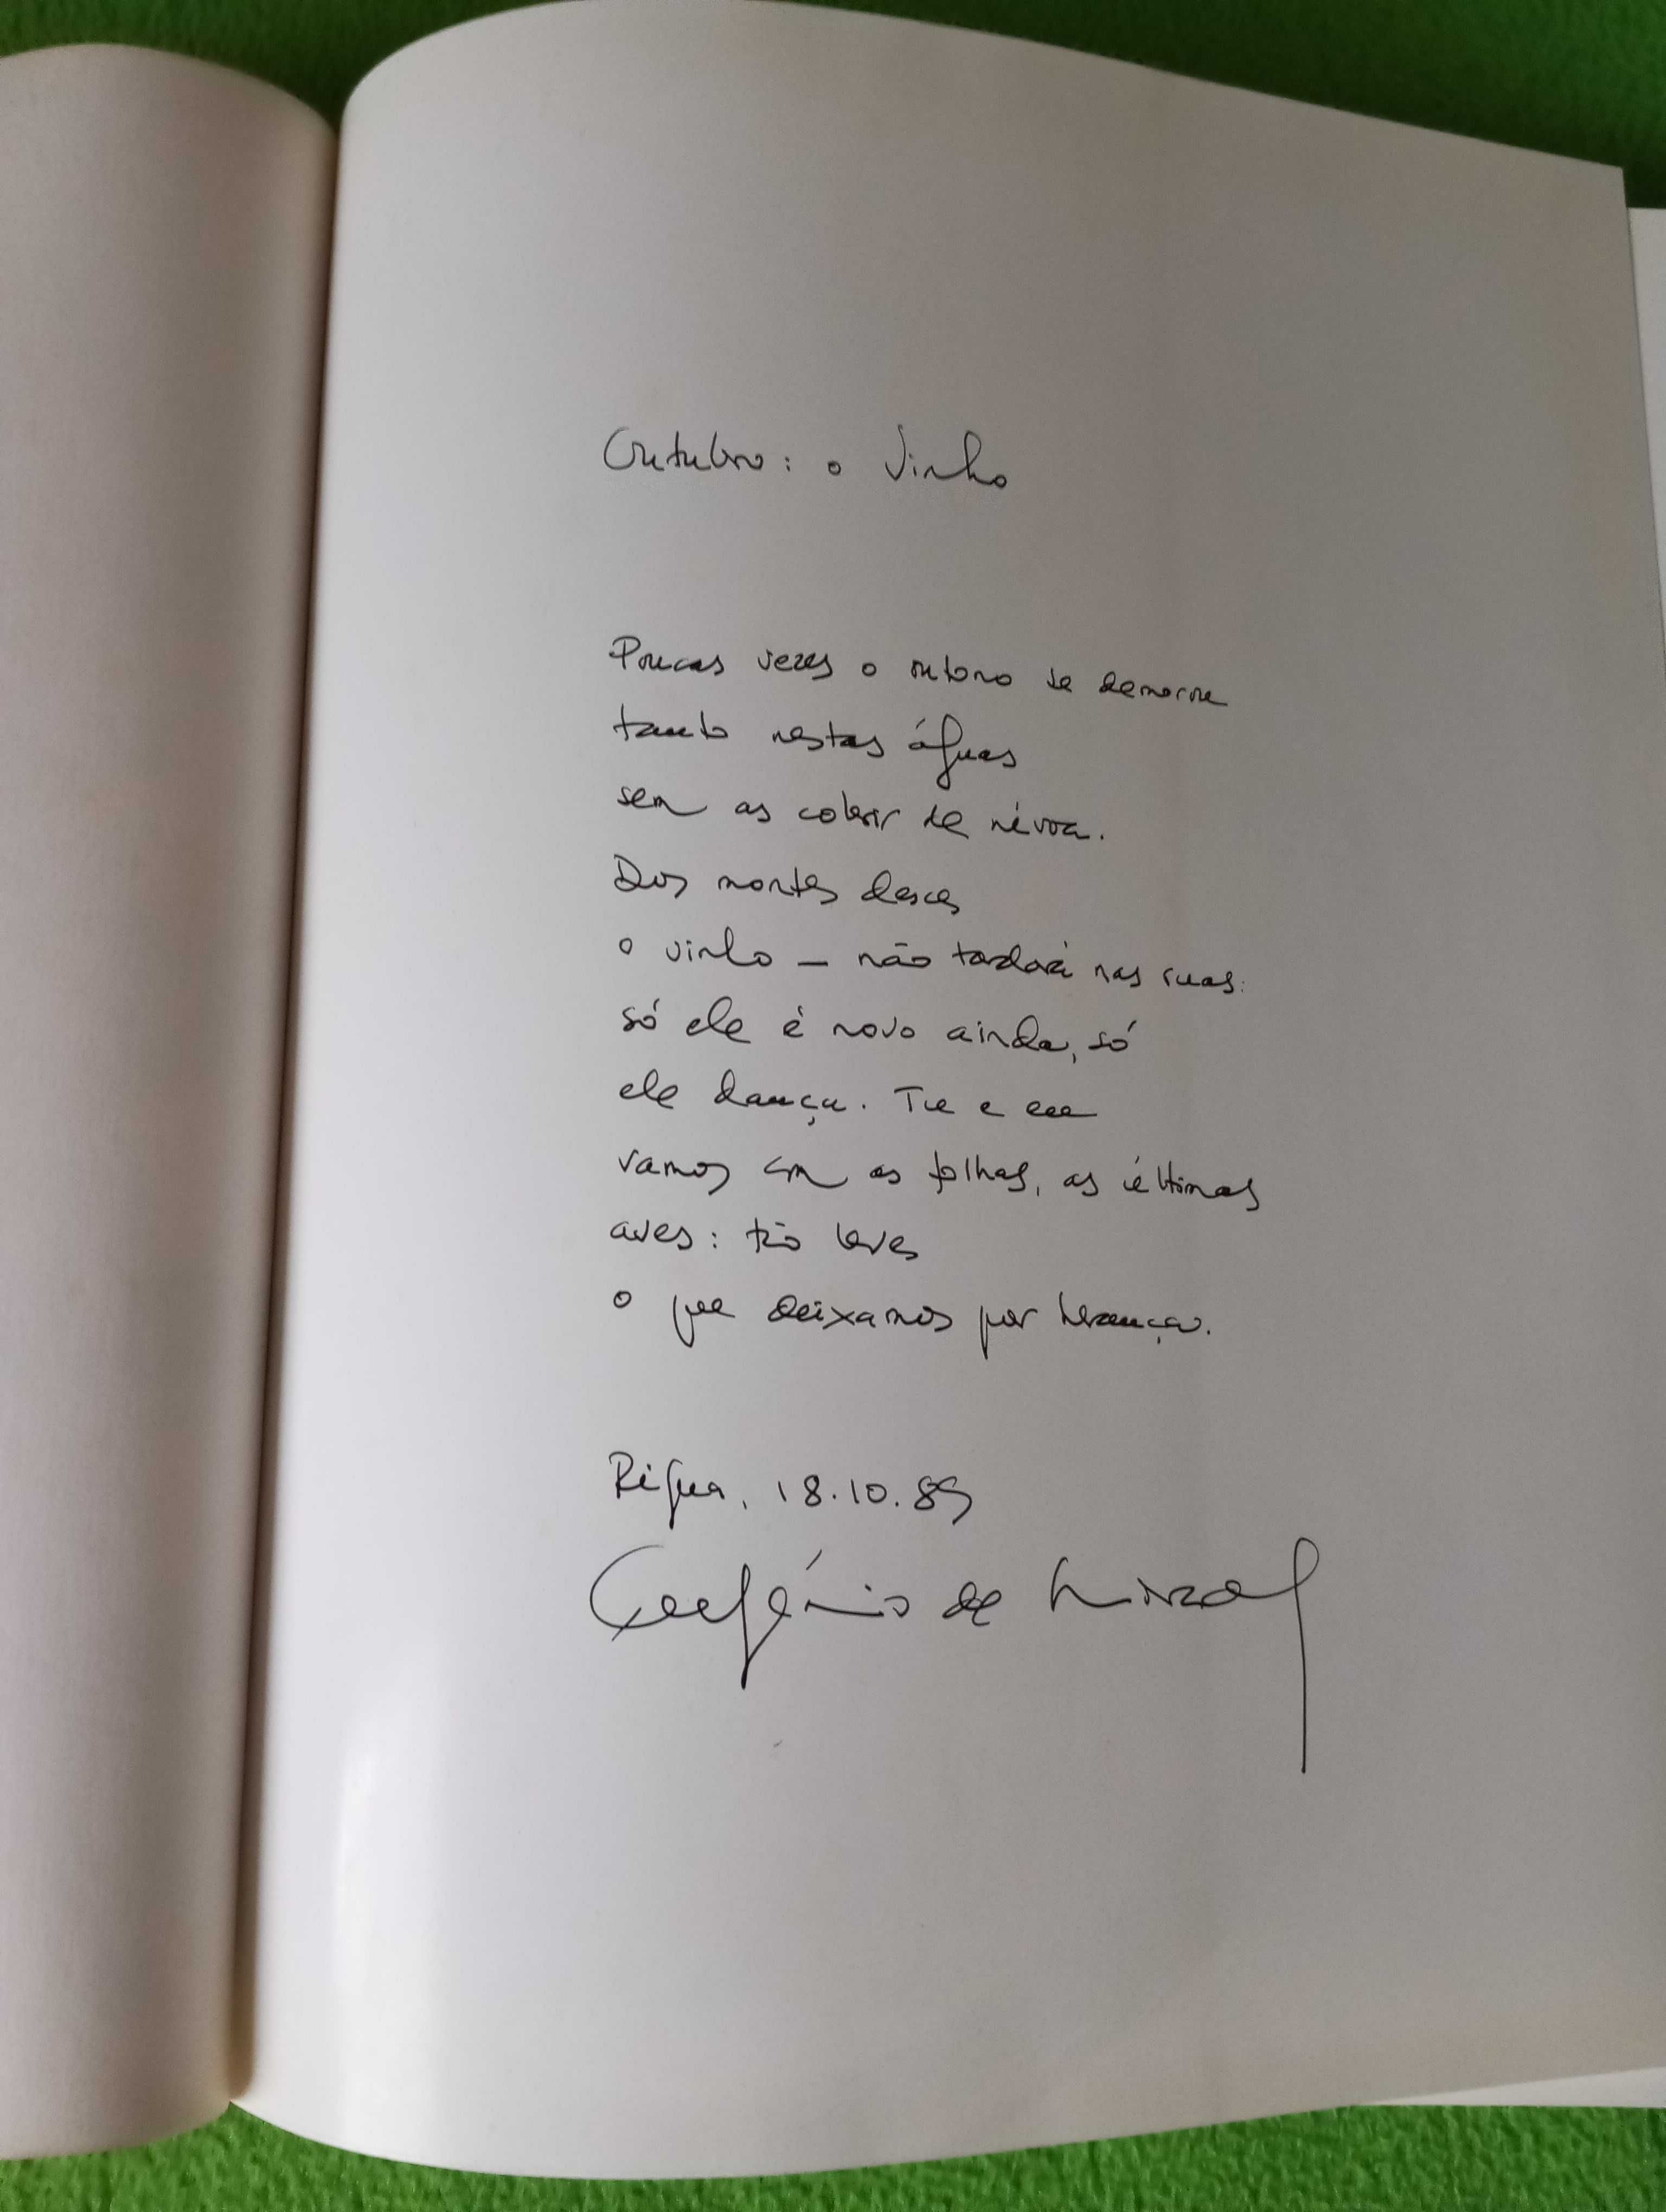 Outubro: o Vinho
Poucas vezes o outono se demorou
tanto nestas águas
sem as cobrir de névoa.
Dos montes desces
o vinho — não tardará nas ruas:
só ele é novo ainda, só
ele dança. Tu e eu
vamos com as folhas, as últimas
aves: tão leves
o que deixamos por herança.
Régua, 18.10.89
Eugénio de Andrade